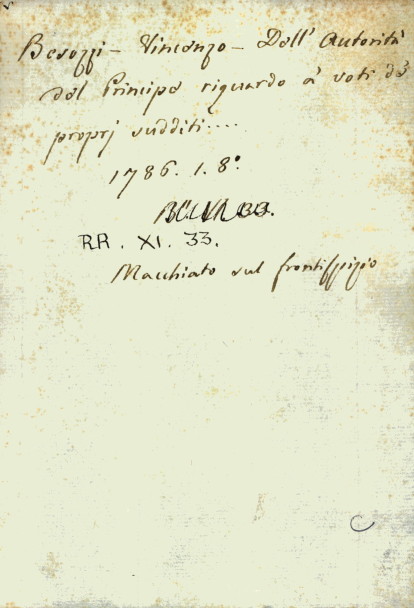 Besozzi - Vincenzo - Dell' Autorità
del Principe riguardo à voti dè
proprj sudditi....
1786. 1. 8°.
RR. XI. 33.
Macchiato sul frontispizio